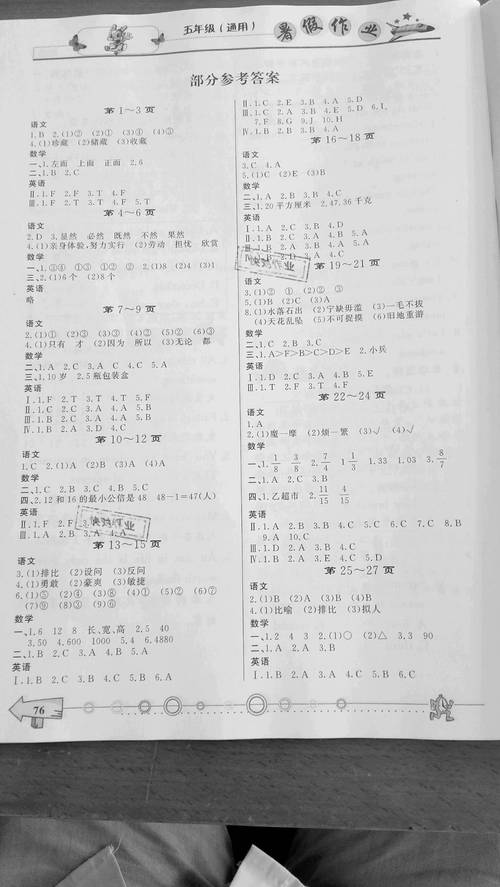 五年级(通用)
暑假作业
部分参考答案
第1～3页
语文
1.B 2.(1)② (2)① (3)④ (4)③
4.(1)珍藏 (2)储藏 (3)收藏
数学
一、1.左面 上面 正面 2.6
二、1.B 2.C
英语
Ⅱ.1.F 2.F 3.T 4.F
Ⅲ.1.F 2.T 3.F 4.T
第4～6页
语文
2.D 3.显然 必然 既然 不然 果然
4.(1)亲身体验,努力实行 (2)劳动 担忧 欣赏
数学
一、1.③④ ①③ ①② ② 2.(1)8 (2)4 (3)1
三、2.(1)6个 (2)8个
英语
略
第7～9页
语文
2.(1)① (2)③ (3)④ (4)⑤ (5)② (6)③
4.(1)只有 才 (2)因为 所以 (3)无论 都
数学
二、1.A 2.C 3.A C 4.C 5.A
三、1.10岁 2.5瓶包装盒
英语
Ⅰ.1.F 2.T 3.T 4.T 5.F
Ⅱ.1.C 2.C 3.A 4.A 5.B
Ⅲ.1.B 2.C 3.A 4.A 5.B
Ⅳ.1.B 2.A 3.D 4.C
第10～12页
语文
1.C 2.(1)A (2)B (3)A (4)A
数学
二、1.C 2.B 3.C 4.B 5.C
四、2.12和16的最小公倍是48 48-1=47(人)
英语
Ⅱ.1.F 2.F
Ⅲ.1.B 2.B 3.A 4.A
第13～15页
语文
3.(1)排比 (2)设问 (3)反问
4.(1)勇敢 (2)豪爽 (3)敏捷
6.(1)⑤ (2)④ (3)⑧ (4)① (5)⑥ (6)②
(7)⑨ (8)③ (9)⑥
数学
一、1.6 12 8 长、宽、高 2.5 40
3.50 4.600 1000 5.4 6.4880
二、1.B 2.C 3.A 4.B 5.A
英语
Ⅰ.1.B 2.C 3.A 4.C 5.B 6.C
Ⅱ.1.C 2.E 3.B 4.A 5.D
Ⅲ.1.C 2.A 3.B 4.E 5.D 6.I
7.F 8.G 9.J 10.H
Ⅳ.1.B 2.A 3.B 4.C
第16～18页
语文
3.C 4.A
5.(1)C (2)E (3)B
数学
二、1.A 2.B 3.B
三、1.20平方厘米 2.47.36千克
英语
Ⅰ.1.D 2.C 3.B 4.D
Ⅱ.1.D 2.C 3.A 4.B
第19～21页
语文
3.(1)② (2)① (3)② (4)③
5.(1)B (2)C (3)A
6.(1)水落石出 (2)宁缺毋滥 (3)一毛不拔
(4)天花乱坠 (5)不可捉摸 (6)旧地重游
数学
二、1.C 2.B 3.C
三、1.A>F>B>C>D>E 2.小兵
英语
Ⅰ.1.D 2.C 3.A 4.B 5.E
Ⅱ.1.F 2.T 3.T 4.F
第22～24页
语文
1.A
2.(1)魔一摩 (2)烦一繁 (3)√ (4)√
数学
一、1. 1/8 3/8 2. 7/4 1 1/3 1.33 1.03 3. 8/7
二、1.A 2.C 3.B
四、1.乙超市 2. 11/15 4/15
英语
Ⅱ.1.A 2.B 3.D 4.C 5.B 6.C 7.C 8.B
9.A 10.C
Ⅲ.1.D 2.C 3.A 4.B
Ⅳ.1.B 2.A 3.E 4.C 5.D
第25～27页
语文
2.(1)B (2)A (3)B (4)B
4.(1)比喻 (2)排比 (3)拟人
数学
一、1.2 4 3 2.(1)○ (2)△ 3.3 90
二、1.A 2.B 3.C
英语
Ⅰ.1.B 2.C 3.A 4.B 5.B 6.C
76